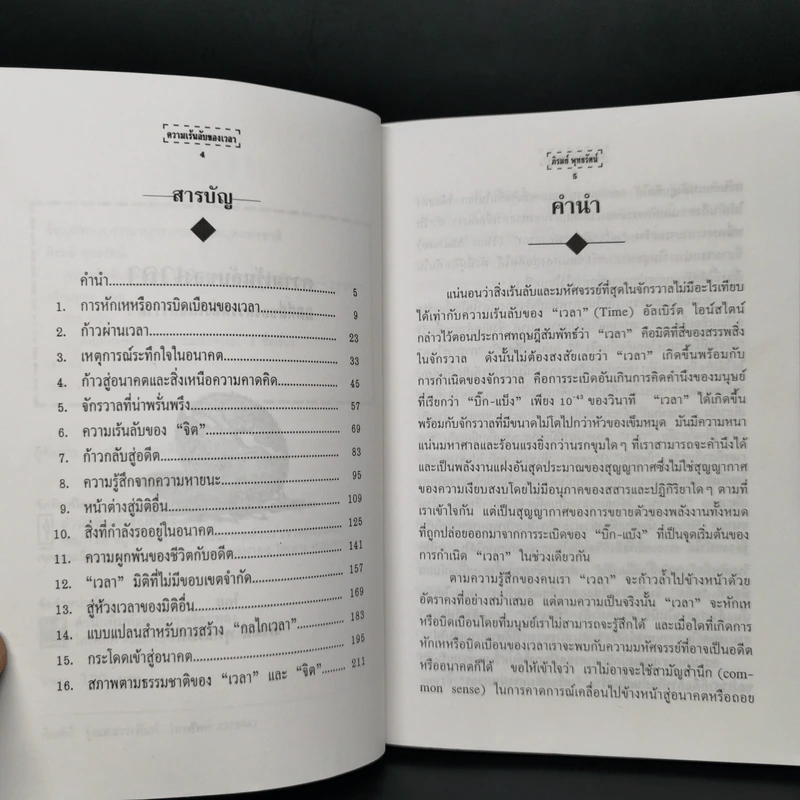 ความเร้นลับของเวลา
4
สารบัญ
คำนำ 5
1. การหักเหหรือการบิดเบือนของเวลา 9
2. ก้าวผ่านเวลา 23
3. เหตุการณ์ระทึกใจในอนาคต 33
4. ก้าวสู่อนาคตและสิ่งเหนือความคาดคิด 45
5. จักรวาลที่น่าพรั่นพรึง 57
6. ความเร้นลับของ “จิต” 69
7. ก้าวกลับสู่อดีต 83
8. ความรู้สึกจากความหายนะ 95
9. หน้าต่างสู่มิติอื่น 109
10. สิ่งที่กำลังรออยู่ในอนาคต 125
11. ความผูกพันของชีวิตกับอดีต 141
12. “เวลา” มิติที่ไม่มีขอบเขตจำกัด 157
13. สู่ห้วงเวลาของมิติอื่น 169
14. แบบแปลนสำหรับการสร้าง “กลไกเวลา” 183
15. กระโดดเข้าสู่อนาคต 195
16. สภาพตามธรรมชาติของ “เวลา” และ “จิต” 211
ภิรมย์ พุทธรัตน์
5
คำนำ
แน่นอนว่าสิ่งเร้นลับและมหัศจรรย์ที่สุดในจักรวาลไม่มีอะไรเทียบ
ได้เท่ากับความเร้นลับของ “เวลา” (Time) อัลเบิร์ต ไอน์สไตน์
กล่าวไว้ตอนประกาศทฤษฎีสัมพันธ์ว่า “เวลา” คือมิติที่สี่ของสรรพสิ่ง
ในจักรวาล ดังนั้นไม่ต้องสงสัยเลยว่า “เวลา” เกิดขึ้นพร้อมกับ
การกำเนิดของจักรวาล คือการระเบิดอันเกินการคิดคำนึงของมนุษย์
ที่เรียกว่า “บิ๊ก-แบ็ง” เพียง 10⁻⁴³ ของวินาที “เวลา” ได้เกิดขึ้น
พร้อมกับจักรวาลที่มีขนาดไม่โตไปกว่าหัวของเข็มหมุด มันมีความหนา
แน่นมหาศาลและร้อนแรงยิ่งกว่านรกขุมใดๆ ที่เราสามารถจะคำนึงได้
และเป็นพลังงานแฝงอันสุดประมาณของสุญญากาศซึ่งไม่ใช่สุญญากาศ
ของความเงียบสงบโดยไม่มีอนุภาคของสสารและปฏิกิริยาใดๆ ตามที่
เราเข้าใจกัน แต่เป็นสุญญากาศของการขยายตัวของพลังงานทั้งหมด
ที่ถูกปล่อยออกมาจากการระเบิดของ “บิ๊ก-แบ็ง” ที่เป็นจุดเริ่มต้นของ
การกำเนิด “เวลา” ในช่วงเดียวกัน
ตามความรู้สึกของคนเรา “เวลา” จะก้าวล้ำไปข้างหน้าด้วย
อัตราคงที่อย่างสม่ำเสมอ แต่ตามความเป็นจริงนั้น “เวลา” จะหักเห
หรือบิดเบือนโดยที่มนุษย์เราไม่สามารถจะรู้สึกได้ และเมื่อใดที่เกิดการ
หักเหหรือบิดเบือนของเวลาเราจะพบกับความมหัศจรรย์ที่อาจเป็นอดีต
หรืออนาคตก็ได้ ขอให้เข้าใจว่า เราไม่อาจจะใช้สามัญสำนึก (com-
mon sense) ในการคาดการณ์เคลื่อนไปข้างหน้าสู่อนาคตหรือถอย